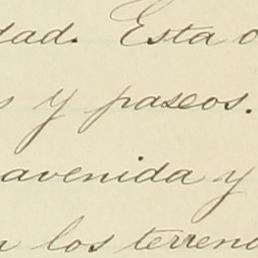 dad. Esta o
s y paseos.
avenida y
n los terreno